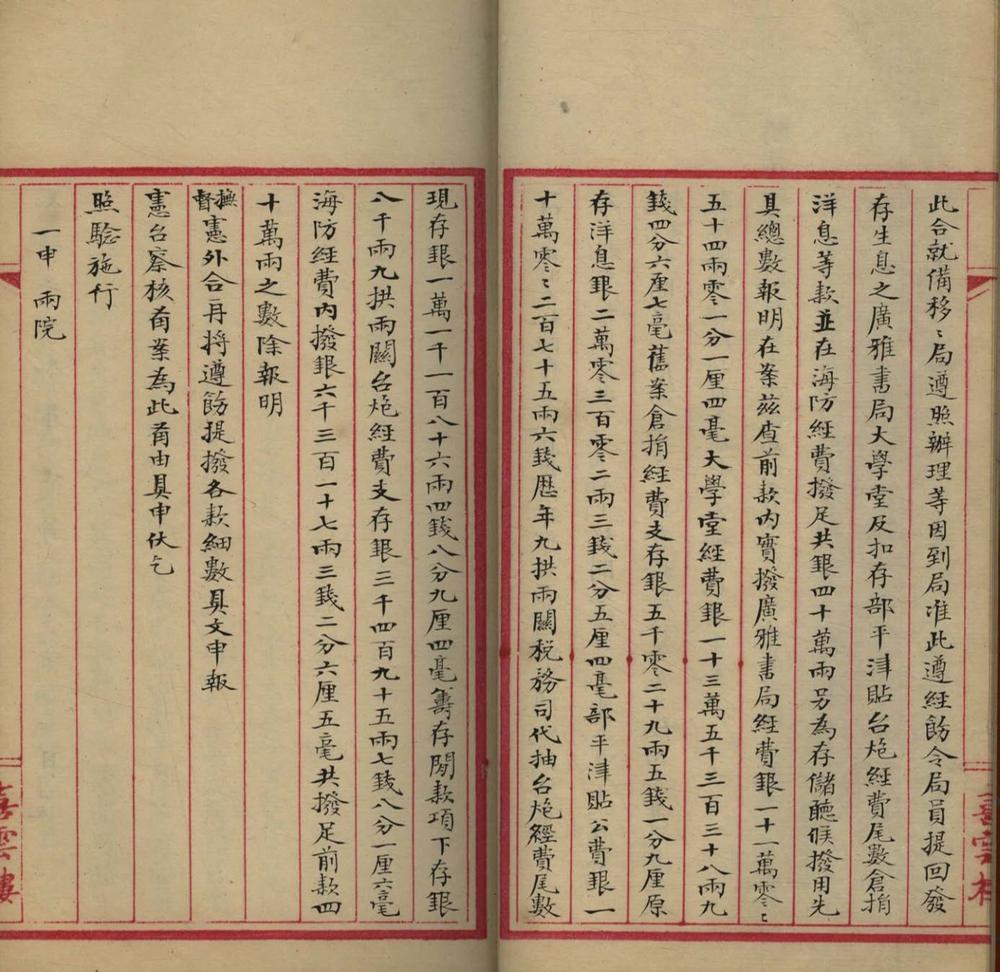 此合就備移〻局遵照辦理等因到局准此遵經飭令局員提回發
存生息之廣雅書局大學堂及扣存部平津貼台炮經費尾數倉捐
洋息等款並在海防經費撥足共銀四十萬兩另為存儲聽候撥用先
具總數報明在案茲查前款內實撥廣雅書局經費銀一十一萬零〻
五十四兩零一分一厘四毫大學堂經費銀一十三萬五千三百三十八兩九
錢四分六厘七毫舊案倉捐經費支存銀五千零二十九兩五錢一分九厘原
存洋息銀二萬零三百零二兩三錢二分五厘四毫部平津貼公費銀一
十萬零〻二百七十五兩六錢歷年九拱兩關稅務司代抽台炮經費尾數
現存銀一萬一千一百八十六兩四錢八分九厘四毫籌存閒款項下存銀
八千兩九拱兩關台炮經費支存銀三千四百九十五兩七錢八分一厘六毫
海防經費內撥銀六千三百一十七兩三錢二分六厘五毫共撥足前款四
十萬兩之數除報明
撫督憲外合再將遵飭提撥各款細數具文申報
憲台察核俻案為此俻由具申伏乞
照驗施行
一申 兩院
喜雲樓